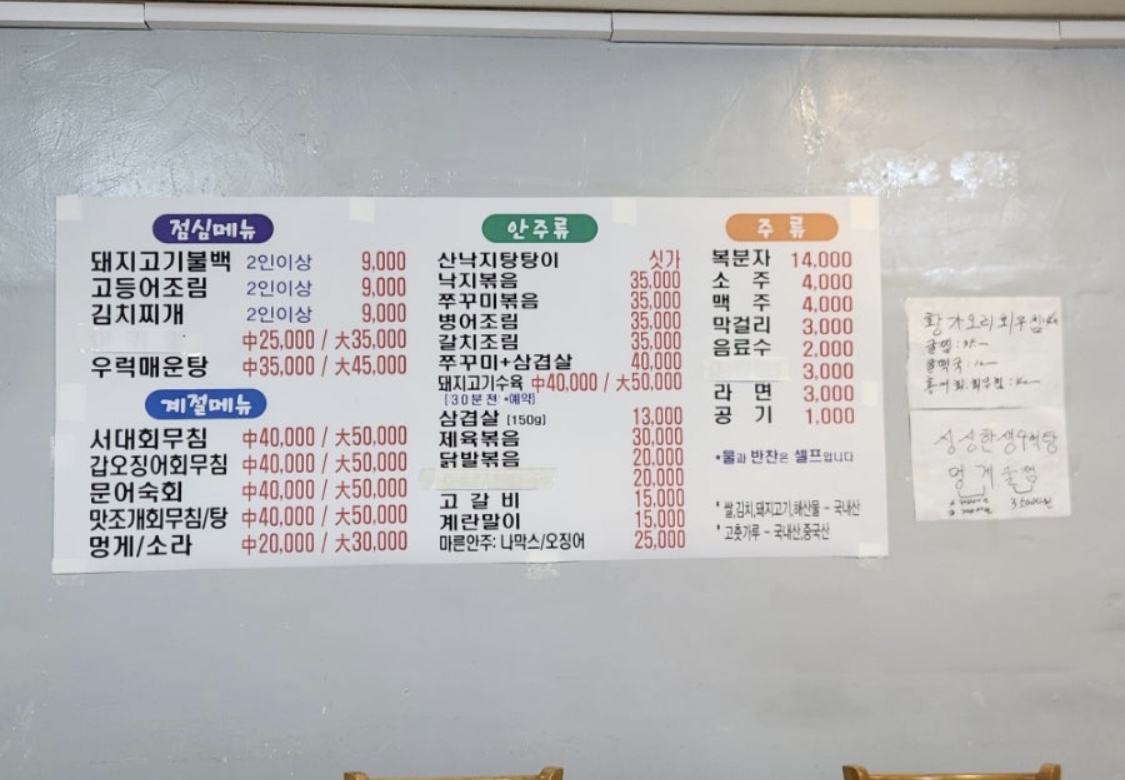 점심메뉴
돼지고기불백 2인이상 9,000
고등어조림 2인이상 9,000
김치찌개 2인이상 9,000
中25,000 / 大35,000
우럭매운탕 中35,000 / 大45,000
계절메뉴
서대회무침 中40,000 / 大50,000
갑오징어회무침 中40,000 / 大50,000
문어숙회 中40,000 / 大50,000
맛조개회무침/탕 中40,000 / 大50,000
멍게/소라 中20,000 / 大30,000
안주류
산낙지탕탕이 싯가
낙지볶음 35,000
쭈꾸미볶음 35,000
병어조림 35,000
갈치조림 35,000
쭈꾸미+삼겹살 40,000
돼지고기수육 中40,000 / 大50,000
[30분전 *예약]
삼겹살 [150g] 13,000
제육볶음 30,000
닭발볶음 20,000
20,000
고갈비 15,000
계란말이 15,000
마른안주: 나막스/오징어 25,000
주류
복분자 14,000
소주 4,000
맥주 4,000
막걸리 3,000
음료수 2,000
3,000
라면 3,000
공기 1,000
*물과 반찬은 셀프입니다
* 쌀,김치,돼지고기,해산물 - 국내산
* 고춧가루 - 국내산,중국산
황가오리회무침
굴찜
굴떡국
홍어회.회무침
싱싱한생우럭탕
멍게 굴찜
35000원